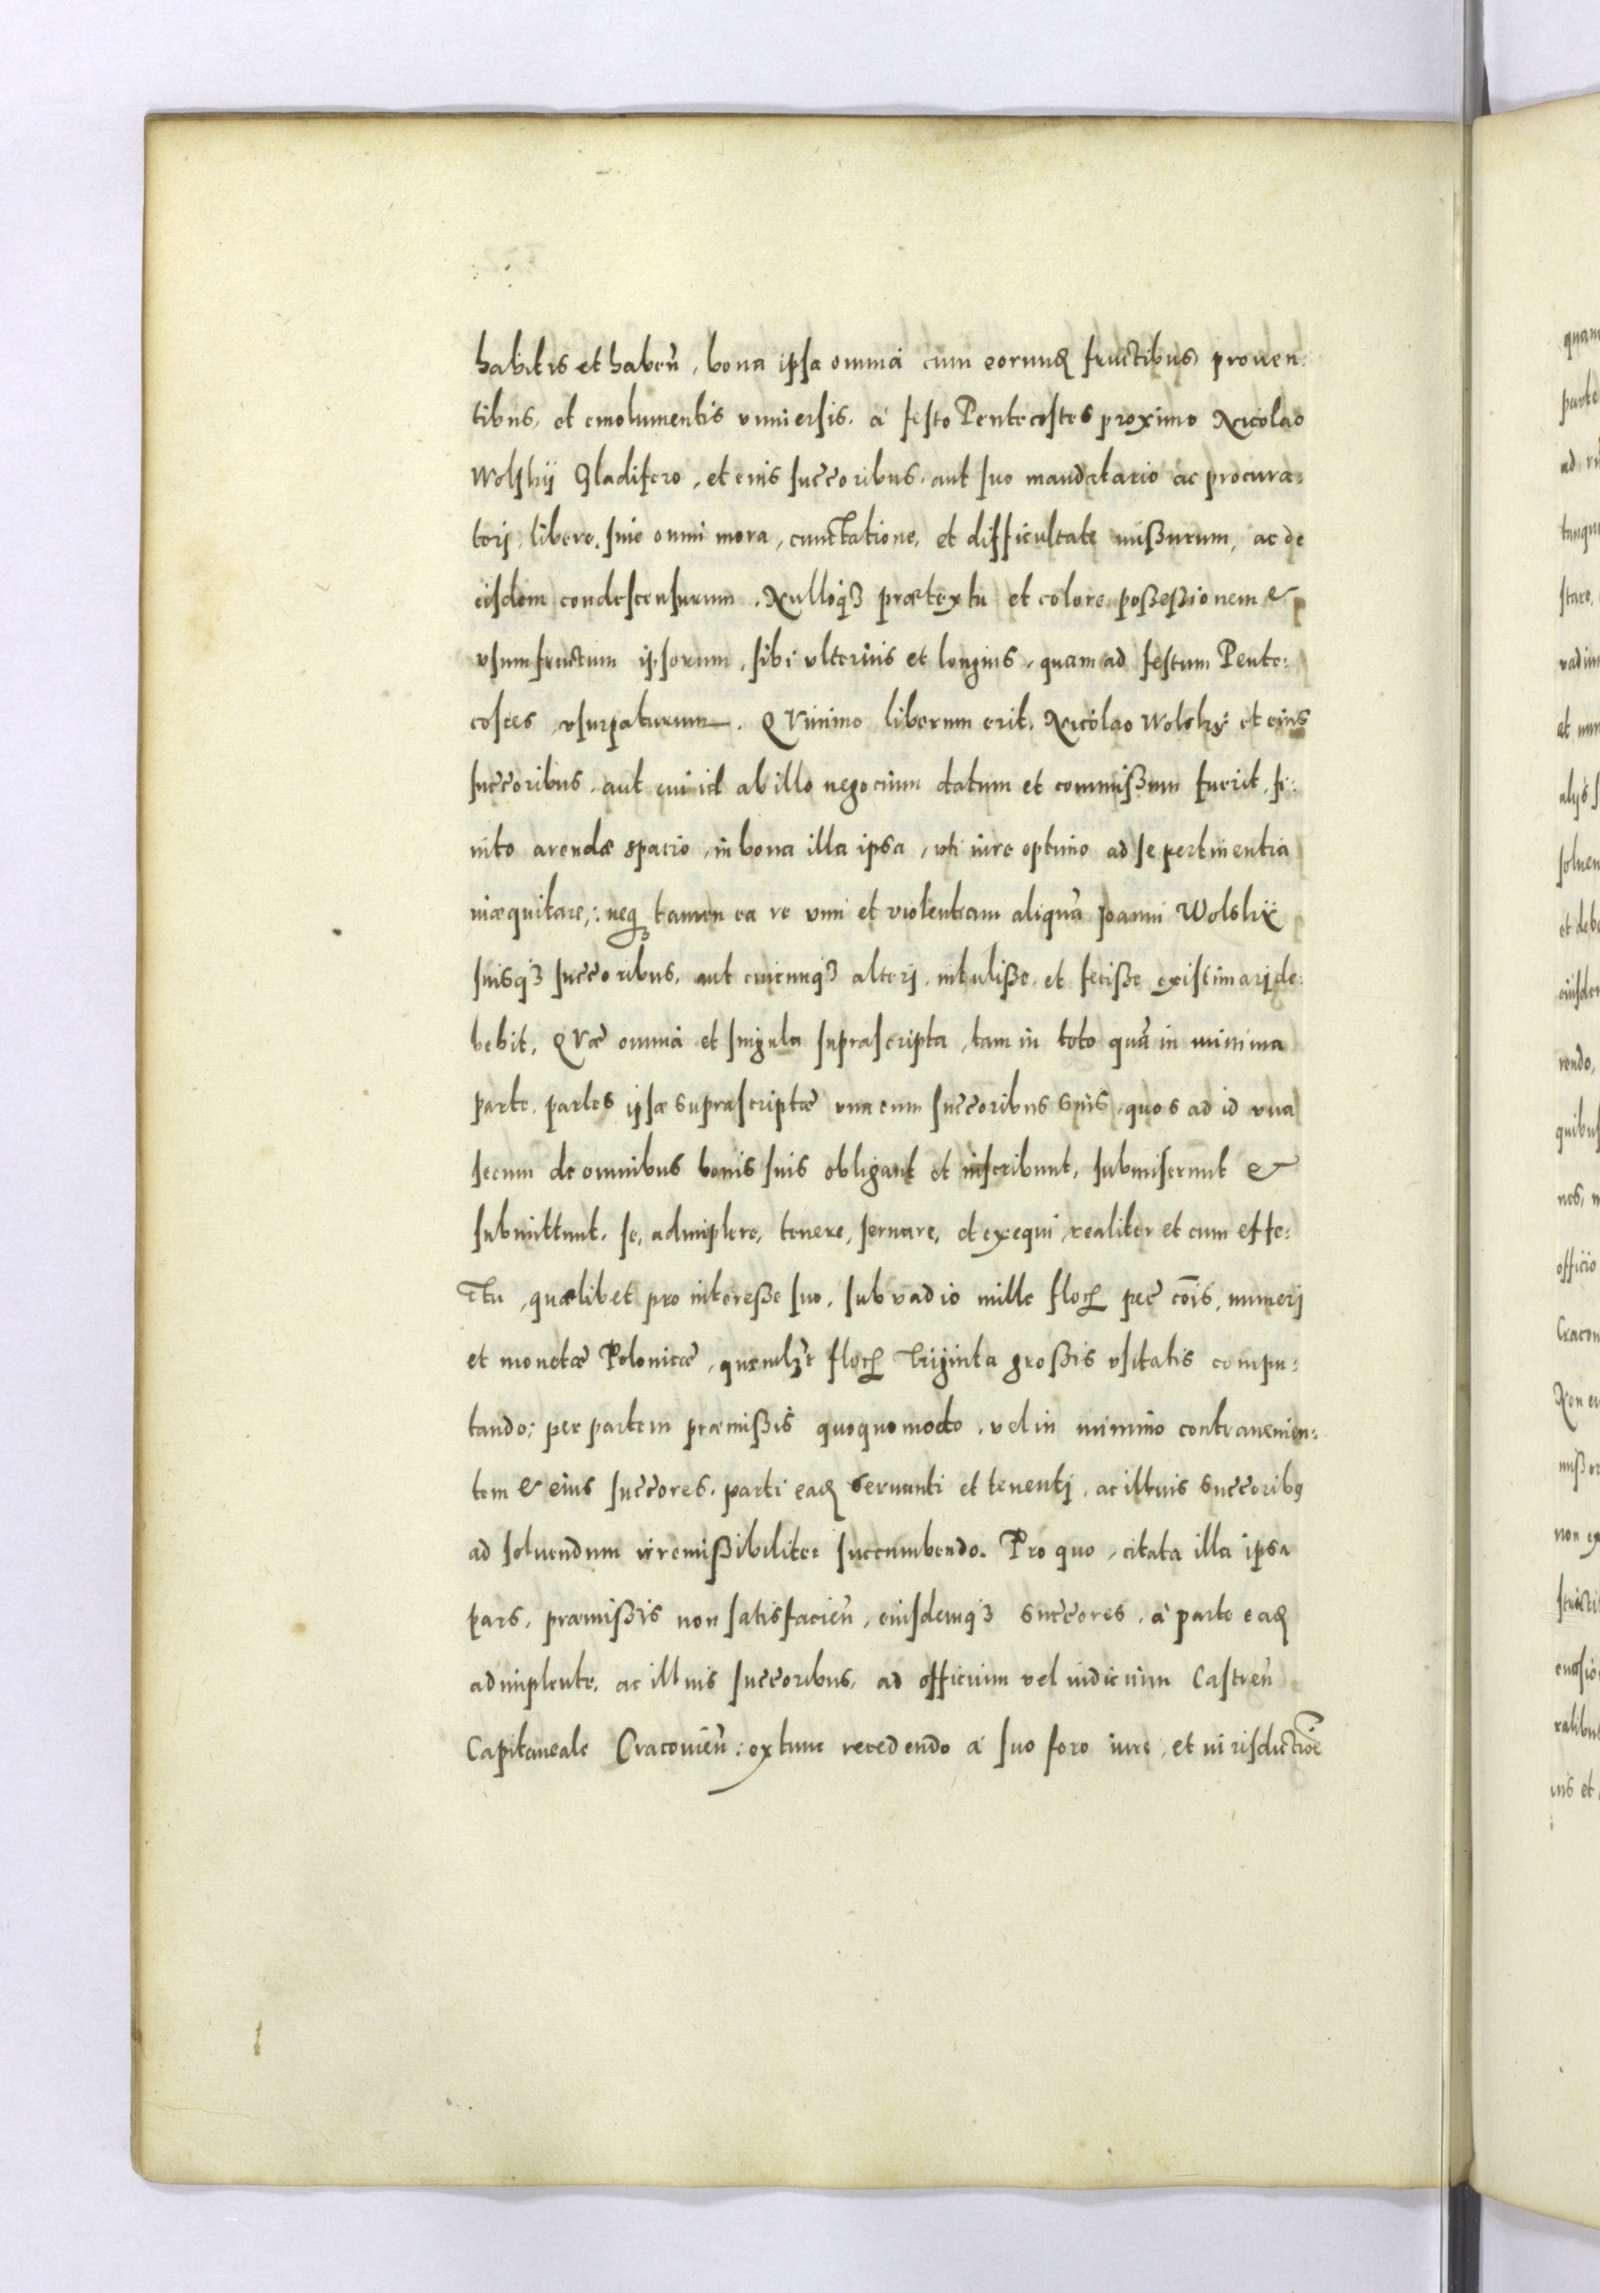 habitis et haben̄, bona ipsa omnia cum eorund fructibus, proven:
tibus, et emolumentis vniuersis. á festo Pentecostes proximo Nicolao
Wolskÿ Gladifero, et eius succ̄oribus, aut suo mandatario ac procura:
torj, libere, sine omni mora, cunctatione, et difficultate missurum, ac de
eisdem condescensurum. Nulloq3 prætextu et colore possessionem &
vsumfructum ipsorum, sibi vlterius et longius, quam ad festum Pente:
costes vsurpaturum. QVinimo liberum erit, Nicolao Wolskÿ et eius
succ̄oribus, aut cui id ab illo negocium datum et commissum fuerit, fi:
nito arendæ spacio, in bona illa ipsa, uti iure optimo ad se pertinentia
inæquitare,: neq3 tamen ea re vim et violentiam aliquā Joanni Wolskÿ
suisq3 succ̄oribus, aut cuicunq3 alterj, intulisse, et fecisse existimarj de:
bebit, QVæ omnia et singula suprascripta, tam in toto quā in minima
parte, partes ipsæ suprascriptæ vna cum succ̄oribus suis, quos ad id vna
secum de omnibus bonis suis obligant et inscribunt, submiserunt &
submittunt, se, adimplere, tenere, seruare, et exequi, realiter et cum effe:
ctu, quælibet pro interesse suo, sub vadio mille floꝝ pec̄ cōis, numerj
et monetæ Polonicæ, quemlꝫt floꝝ triginta grossis vsitatis compu:
tando; per partem præmissis quoquomodo, vel in minimo contrauenien:
tem & eius succ̄ores, parti ead seruanti et tenentj, ac illiuis succ̄orib9
ad soluendum irremissibiliter succumbendo. Pro quo, citata illa ipsa
pars, præmissis non satisfacien̄, eiusdemq3 succ̄ores, á parte ead
adimplente, ac illius succ̄oribus, ad officium vel iudicium Castren̄
Capitaneale Cracouien̄: extunc recedendo á suo foro iure, et iurisdictiōe